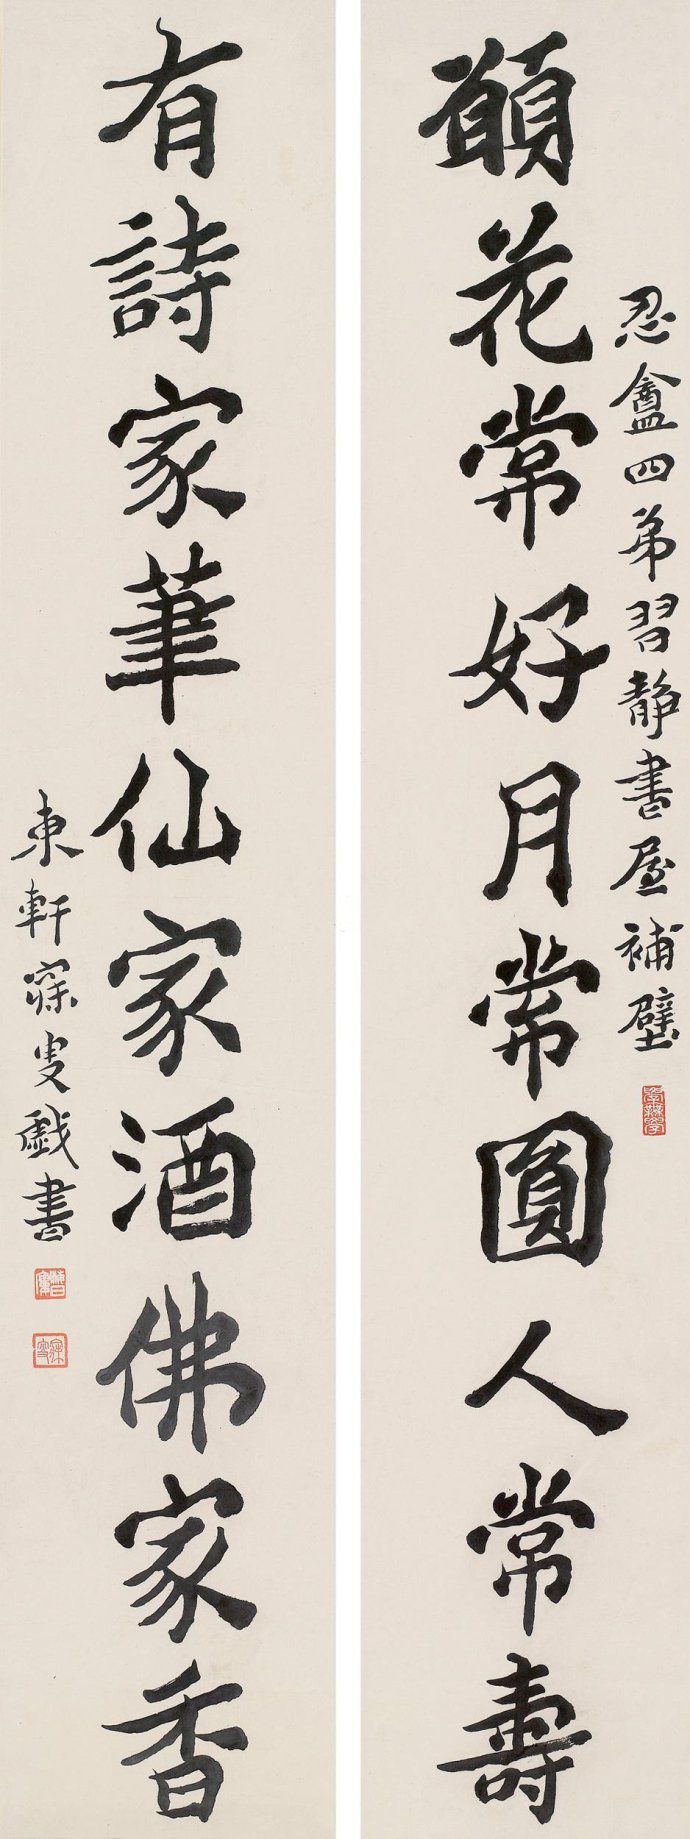 忍盦四弟習靜書屋補壁
願花常好月常圓人常壽
有詩家筆仙家酒佛家香
東軒寐叟戲書